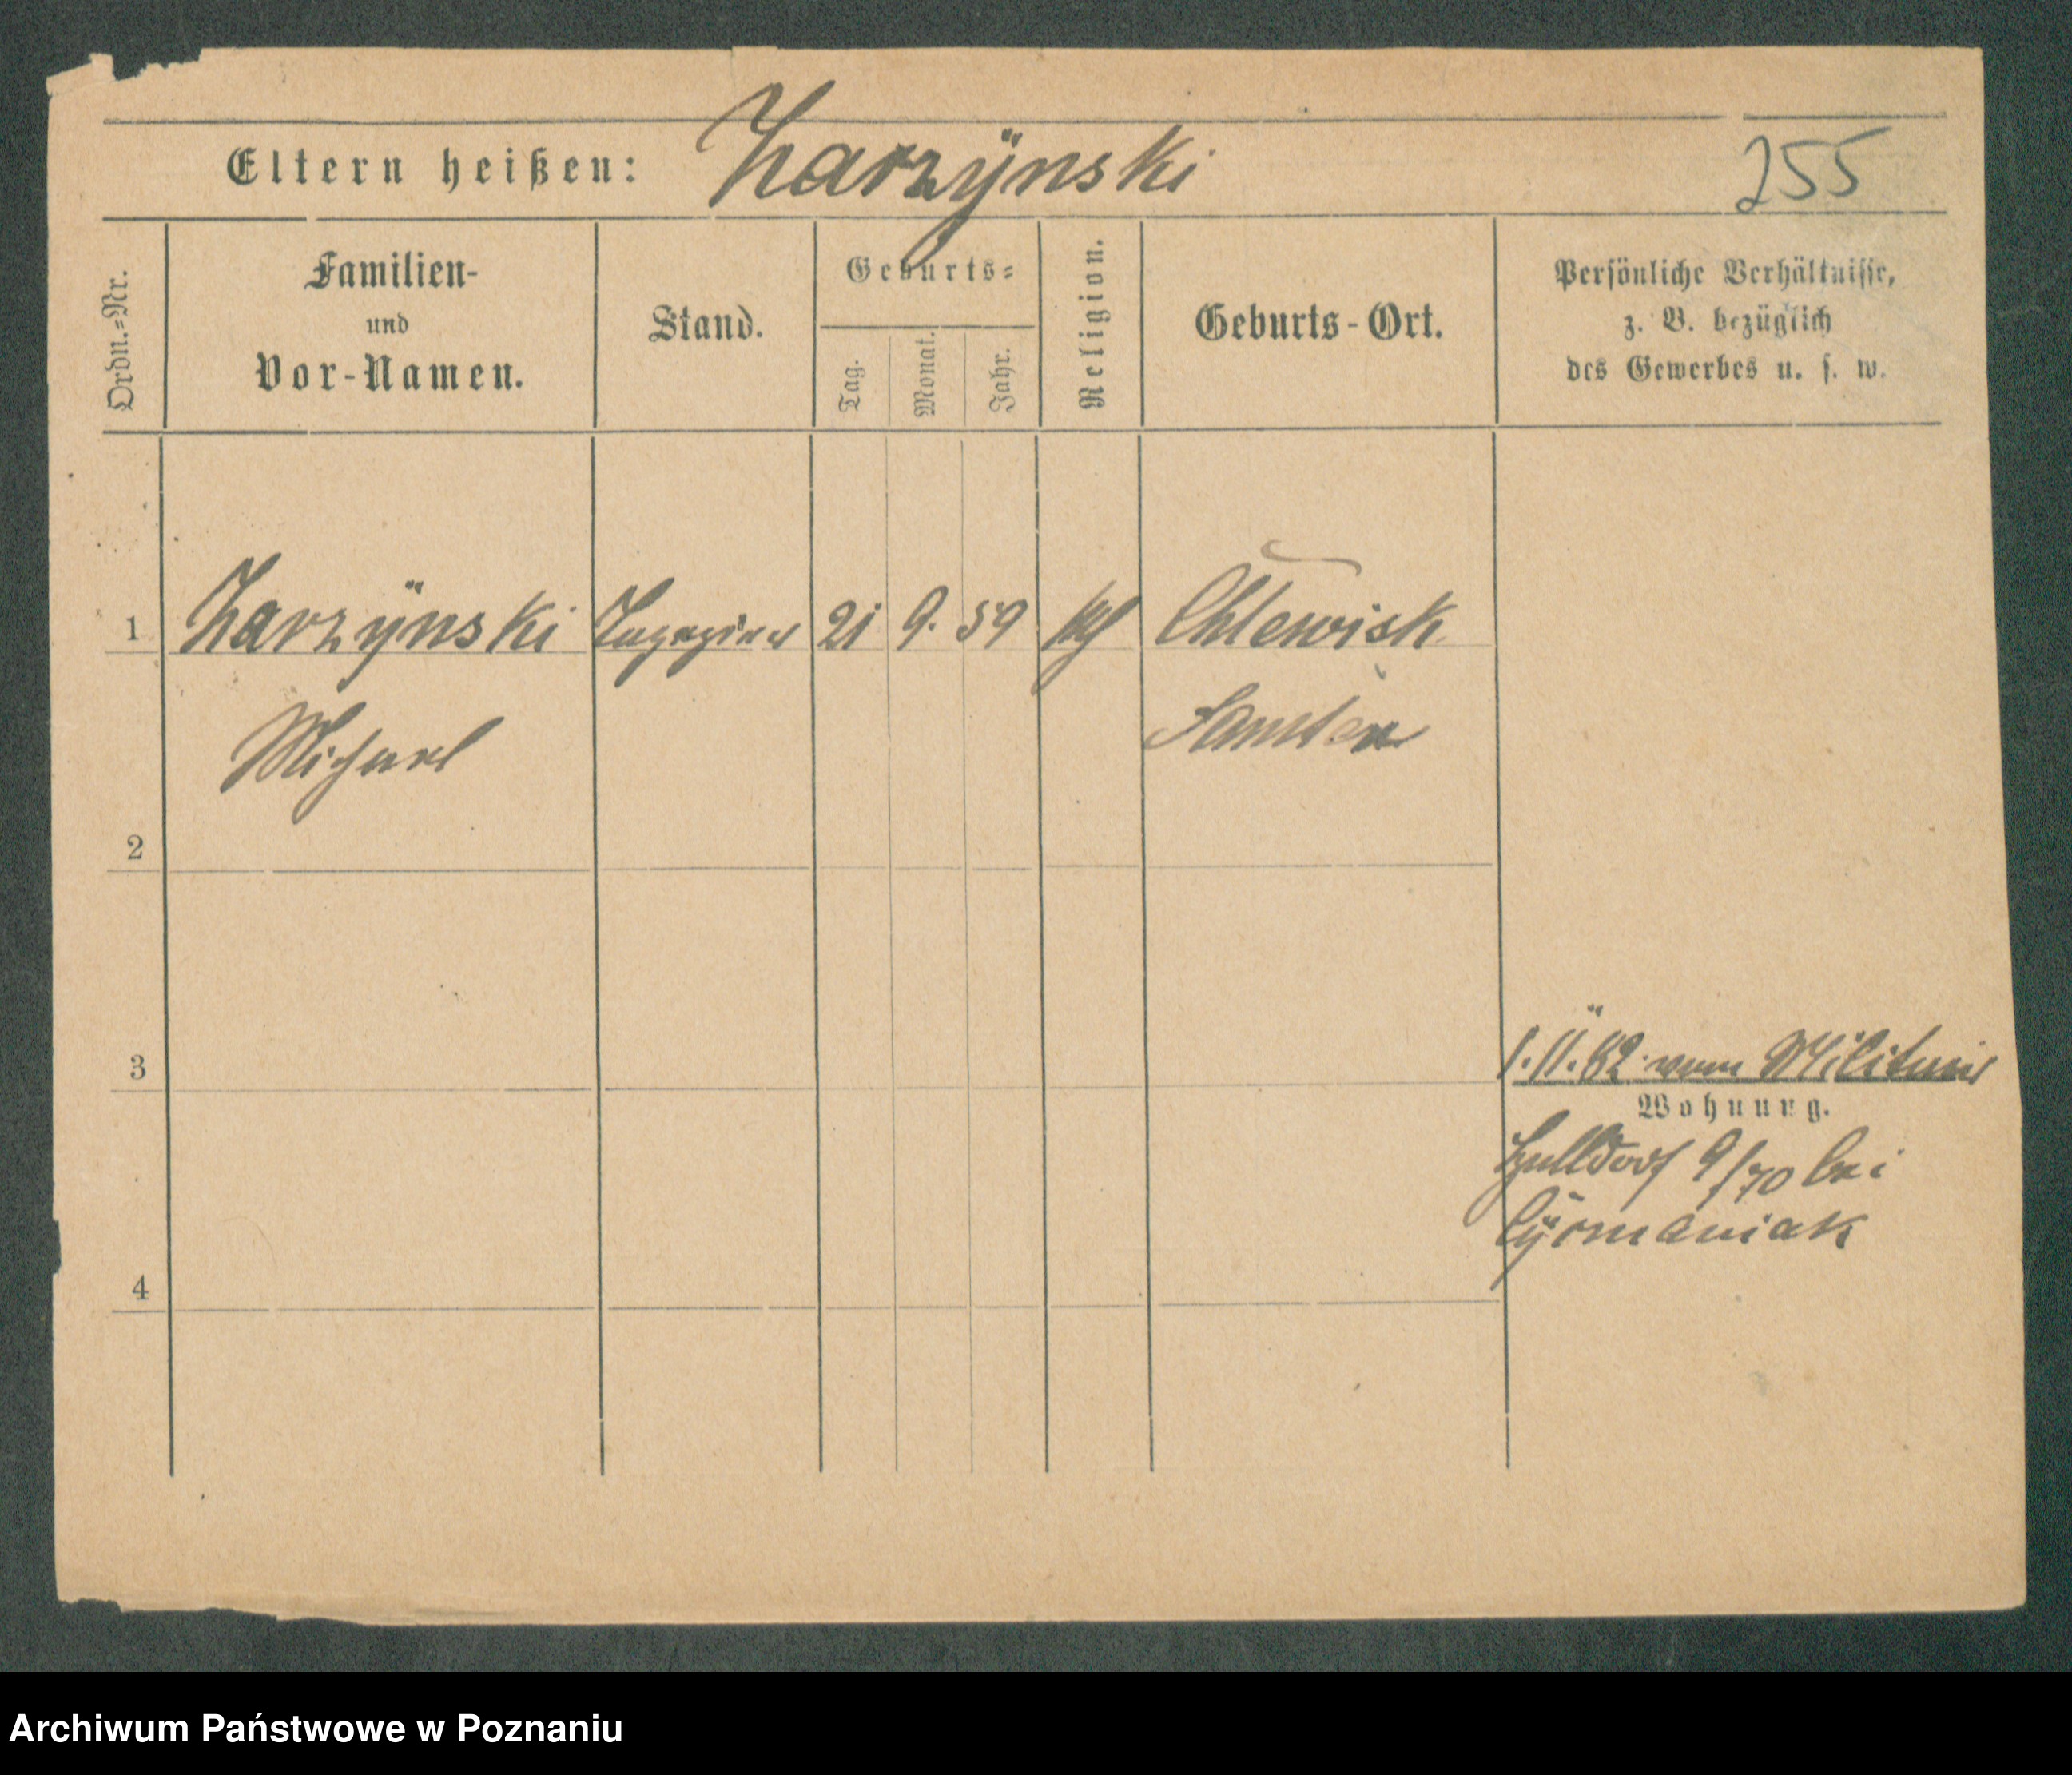 Eltern heißen: Zarzÿnski 255
Ordn.=Nr.
Familien-
und
Vor-Namen.
Stand.
Geburts=
Tag.
Monat.
Jahr.
Religion.
Geburts-Ort.
Persönliche Verhältnisse,
z. B. bezüglich
des Gewerbes u. s. w.
1 Zarzÿnski Tapezierer 21 9. 59 kth Chlewisk
Michael Samter
2
3
1. 11. 82 vom Militair
Wohnung.
Halldorf 9/70 bei
4
Archiwum Państwowe w Poznaniu